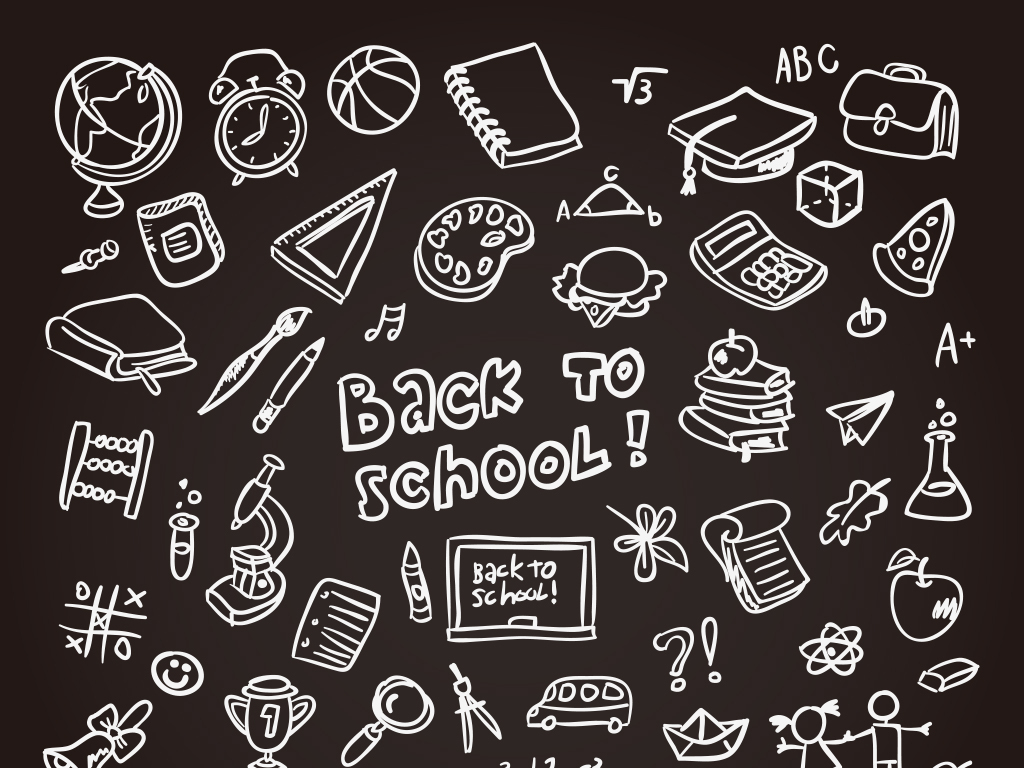 ABC
√3
C
A b
A+
Back TO
school!
Back to
school!
O X
X
X O
?!
1